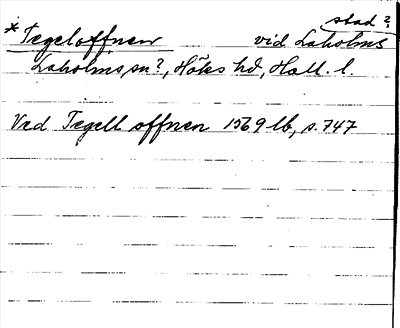 stad?
* Tegeloffnen vid Laholms
Laholms sn?, Höks hd, Hall. l.
Ved Tegell offnen 1569 lb, s. 747